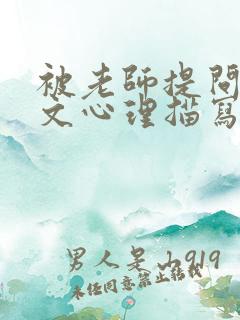 被老師提問
文心理描寫
男人吴山919
未经同意禁止转载